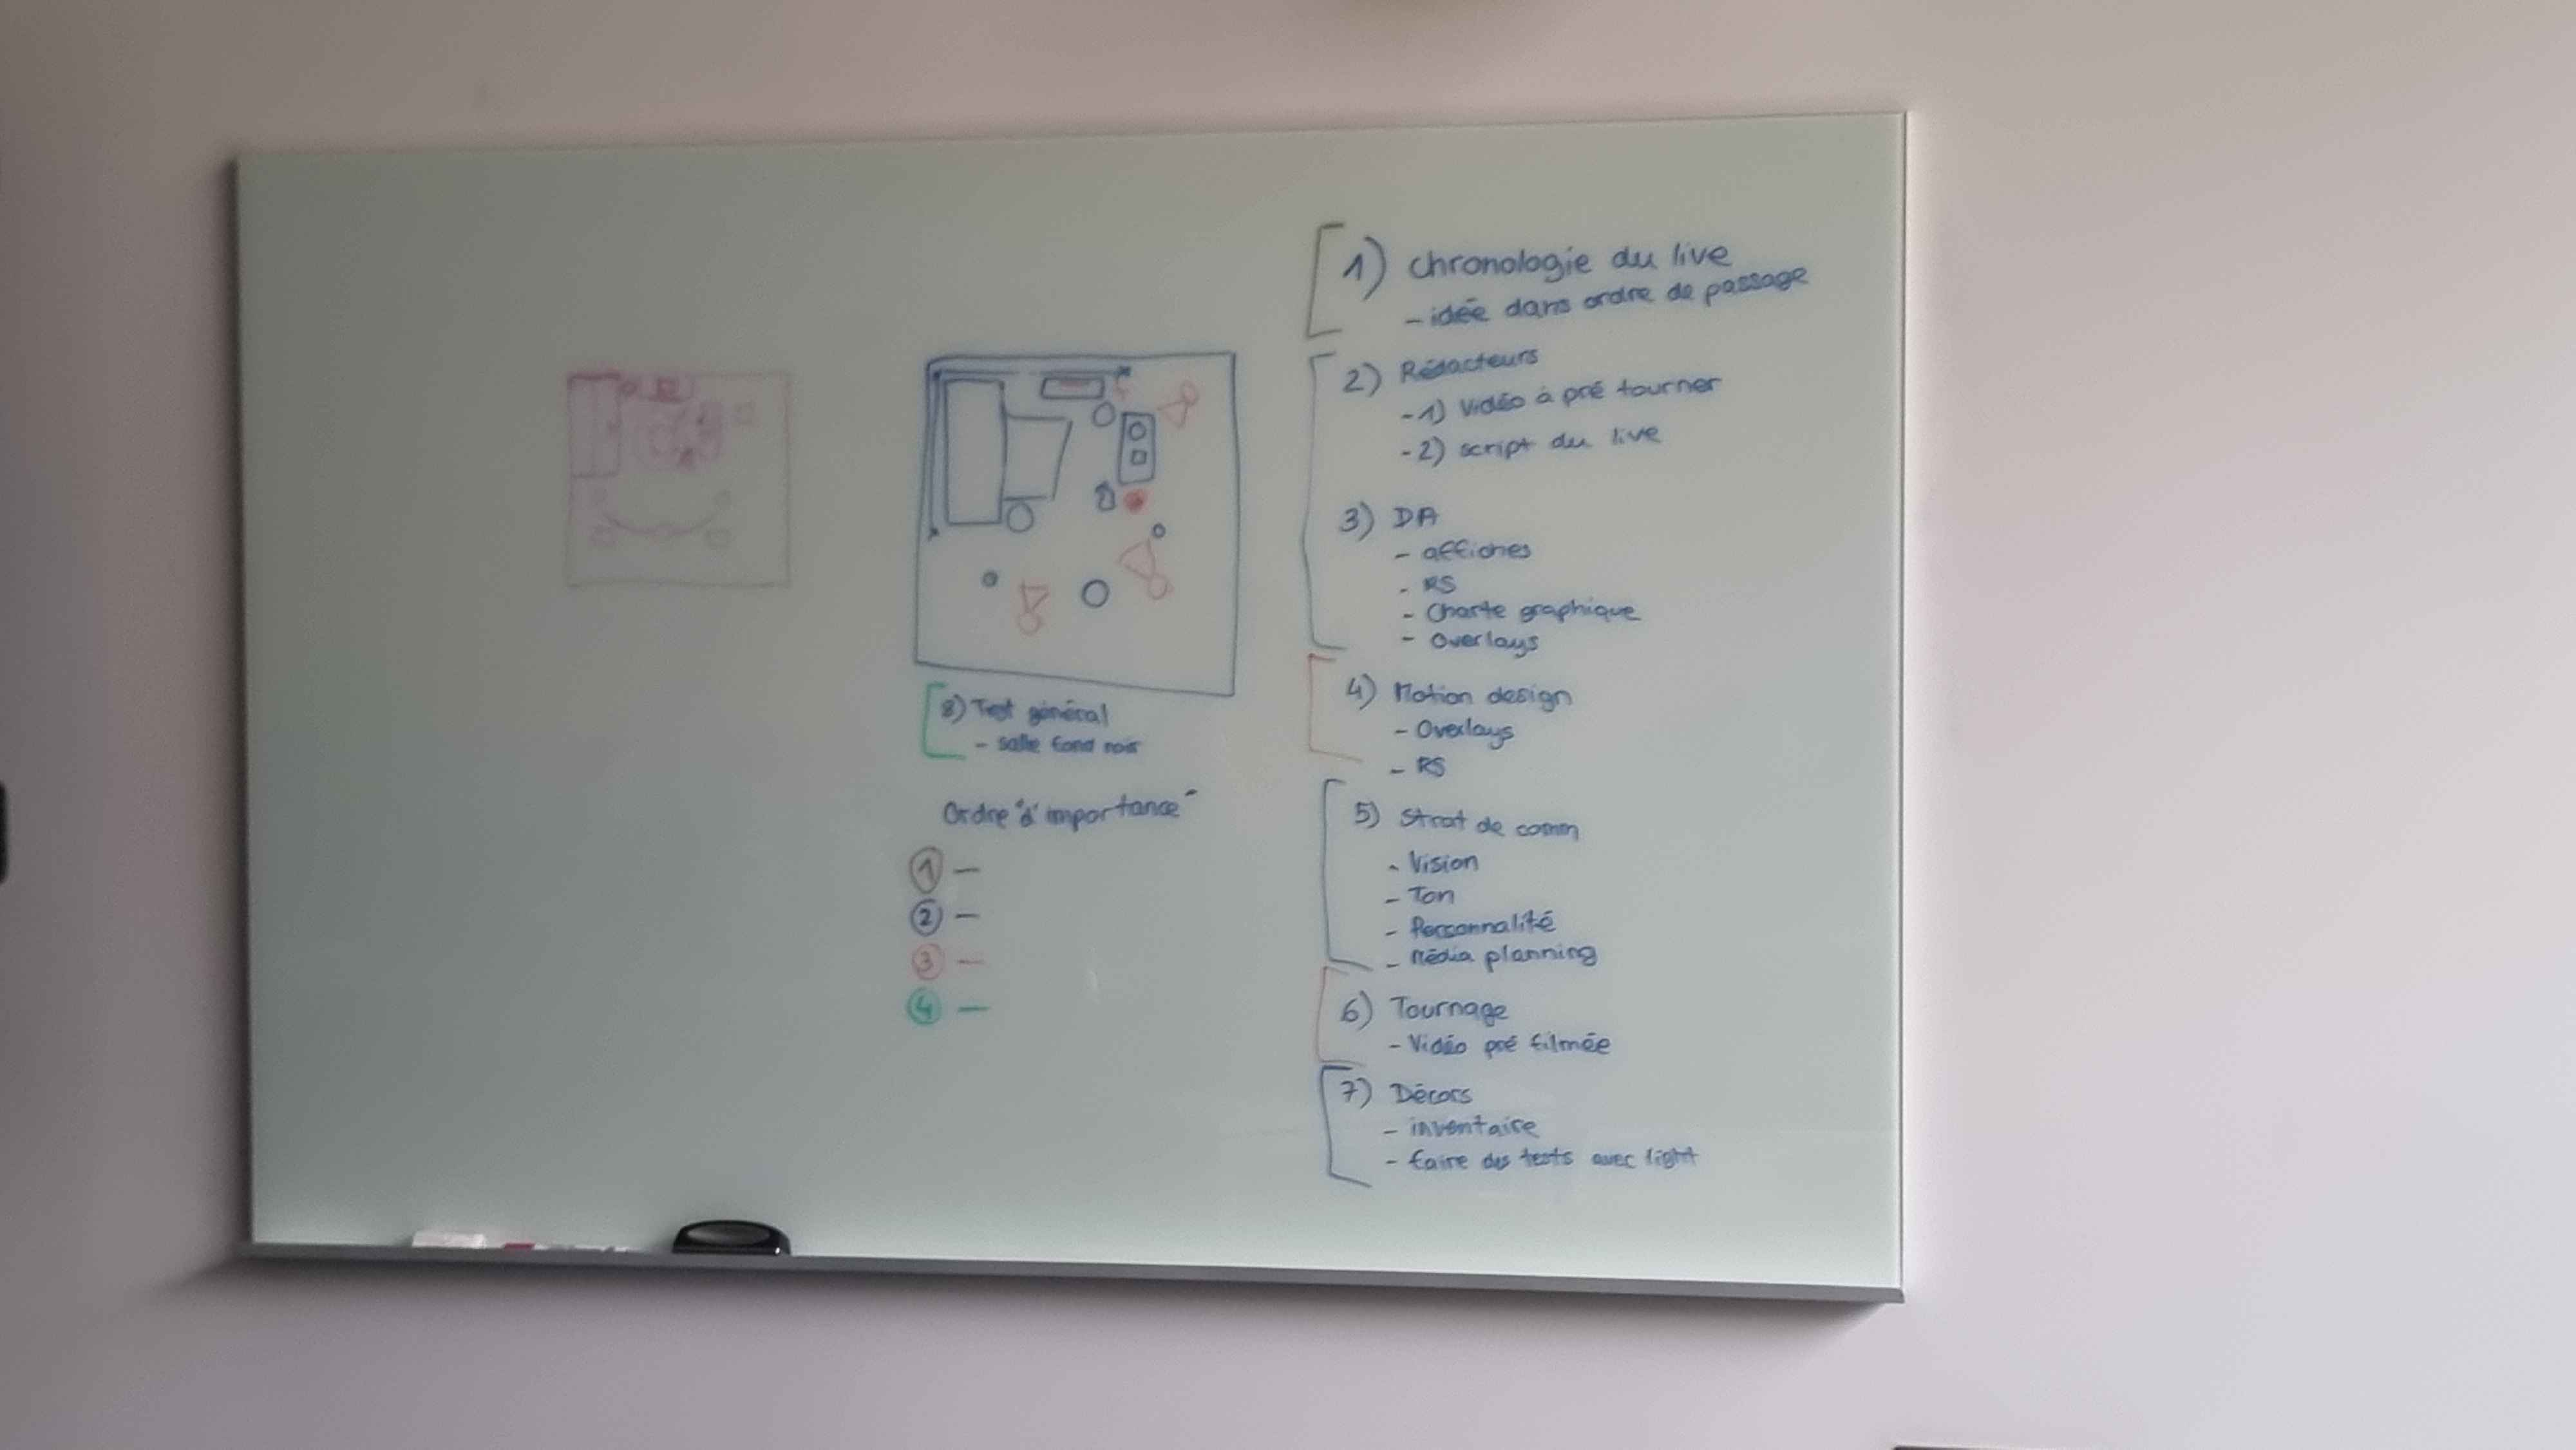 1) chronologie du live
- idée dans ordre de passage
2) Rédacteurs
- 1) Vidéo à pré tourner
- 2) script du live
3) DA
- affiches
- RS
- Charte graphique
- Overlays
4) Motion design
- Overlays
- RS
5) Strat de comm
- Vision
- Ton
- Personnalité
- Média planning
6) Tournage
- Vidéo pré filmée
7) Décors
- inventaire
- faire des tests avec light
8) Test général
- salle fond noir
Ordre "d'importance"
1 -
2 -
3 -
4 -